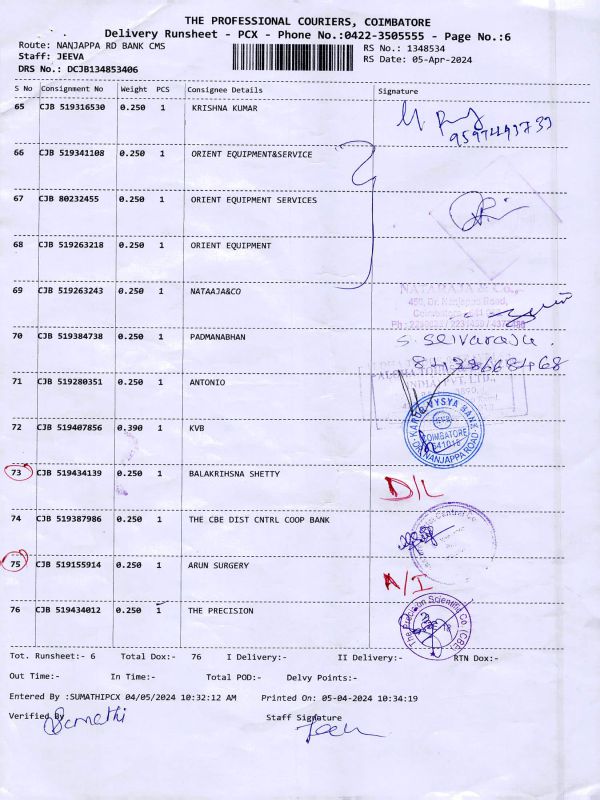 THE PROFESSIONAL COURIERS, COIMBATORE
Delivery Runsheet - PCX - Phone No.:0422-3505555 - Page No.:6
Route: NANJAPPA RD BANK CMS
RS No.: 1348534
Staff: JEEVA
RS Date: 05-Apr-2024
DRS No.: DCJB134853406
S No Consignment No Weight PCS Consignee Details Signature
65 CJB 519316530 0.250 1 KRISHNA KUMAR
66 CJB 519341108 0.250 1 ORIENT EQUIPMENT&SERVICE
67 CJB 80232455 0.250 1 ORIENT EQUIPMENT SERVICES
68 CJB 519263218 0.250 1 ORIENT EQUIPMENT
69 CJB 519263243 0.250 1 NATAAJA&CO
NATARAJA & Co.,
450, Dr. Nanjappa Road,
70 CJB 519384738 0.250 1 PADMANABHAN
S. Selvaraju.
71 CJB 519280351 0.250 1 ANTONIO
72 CJB 519407856 0.390 1 KVB
KARUR VYSYA BANK
COIMBATORE
641018
DR. NANJAPPA ROAD
73 CJB 519434139 0.250 1 BALAKRIHSNA SHETTY
D/L
74 CJB 519387986 0.250 1 THE CBE DIST CNTRL COOP BANK
75 CJB 519155914 0.250 1 ARUN SURGERY
A/I
76 CJB 519434012 0.250 1 THE PRECISION
The Precision Scientific Co. (CBE)
Tot. Runsheet:- 6 Total Dox:- 76 I Delivery:- II Delivery:- RTN Dox:-
Out Time:- In Time:- Total POD:- Delvy Points:-
Entered By :SUMATHIPCX 04/05/2024 10:32:12 AM Printed On: 05-04-2024 10:34:19
Verified By
Staff Signature
Sumathi